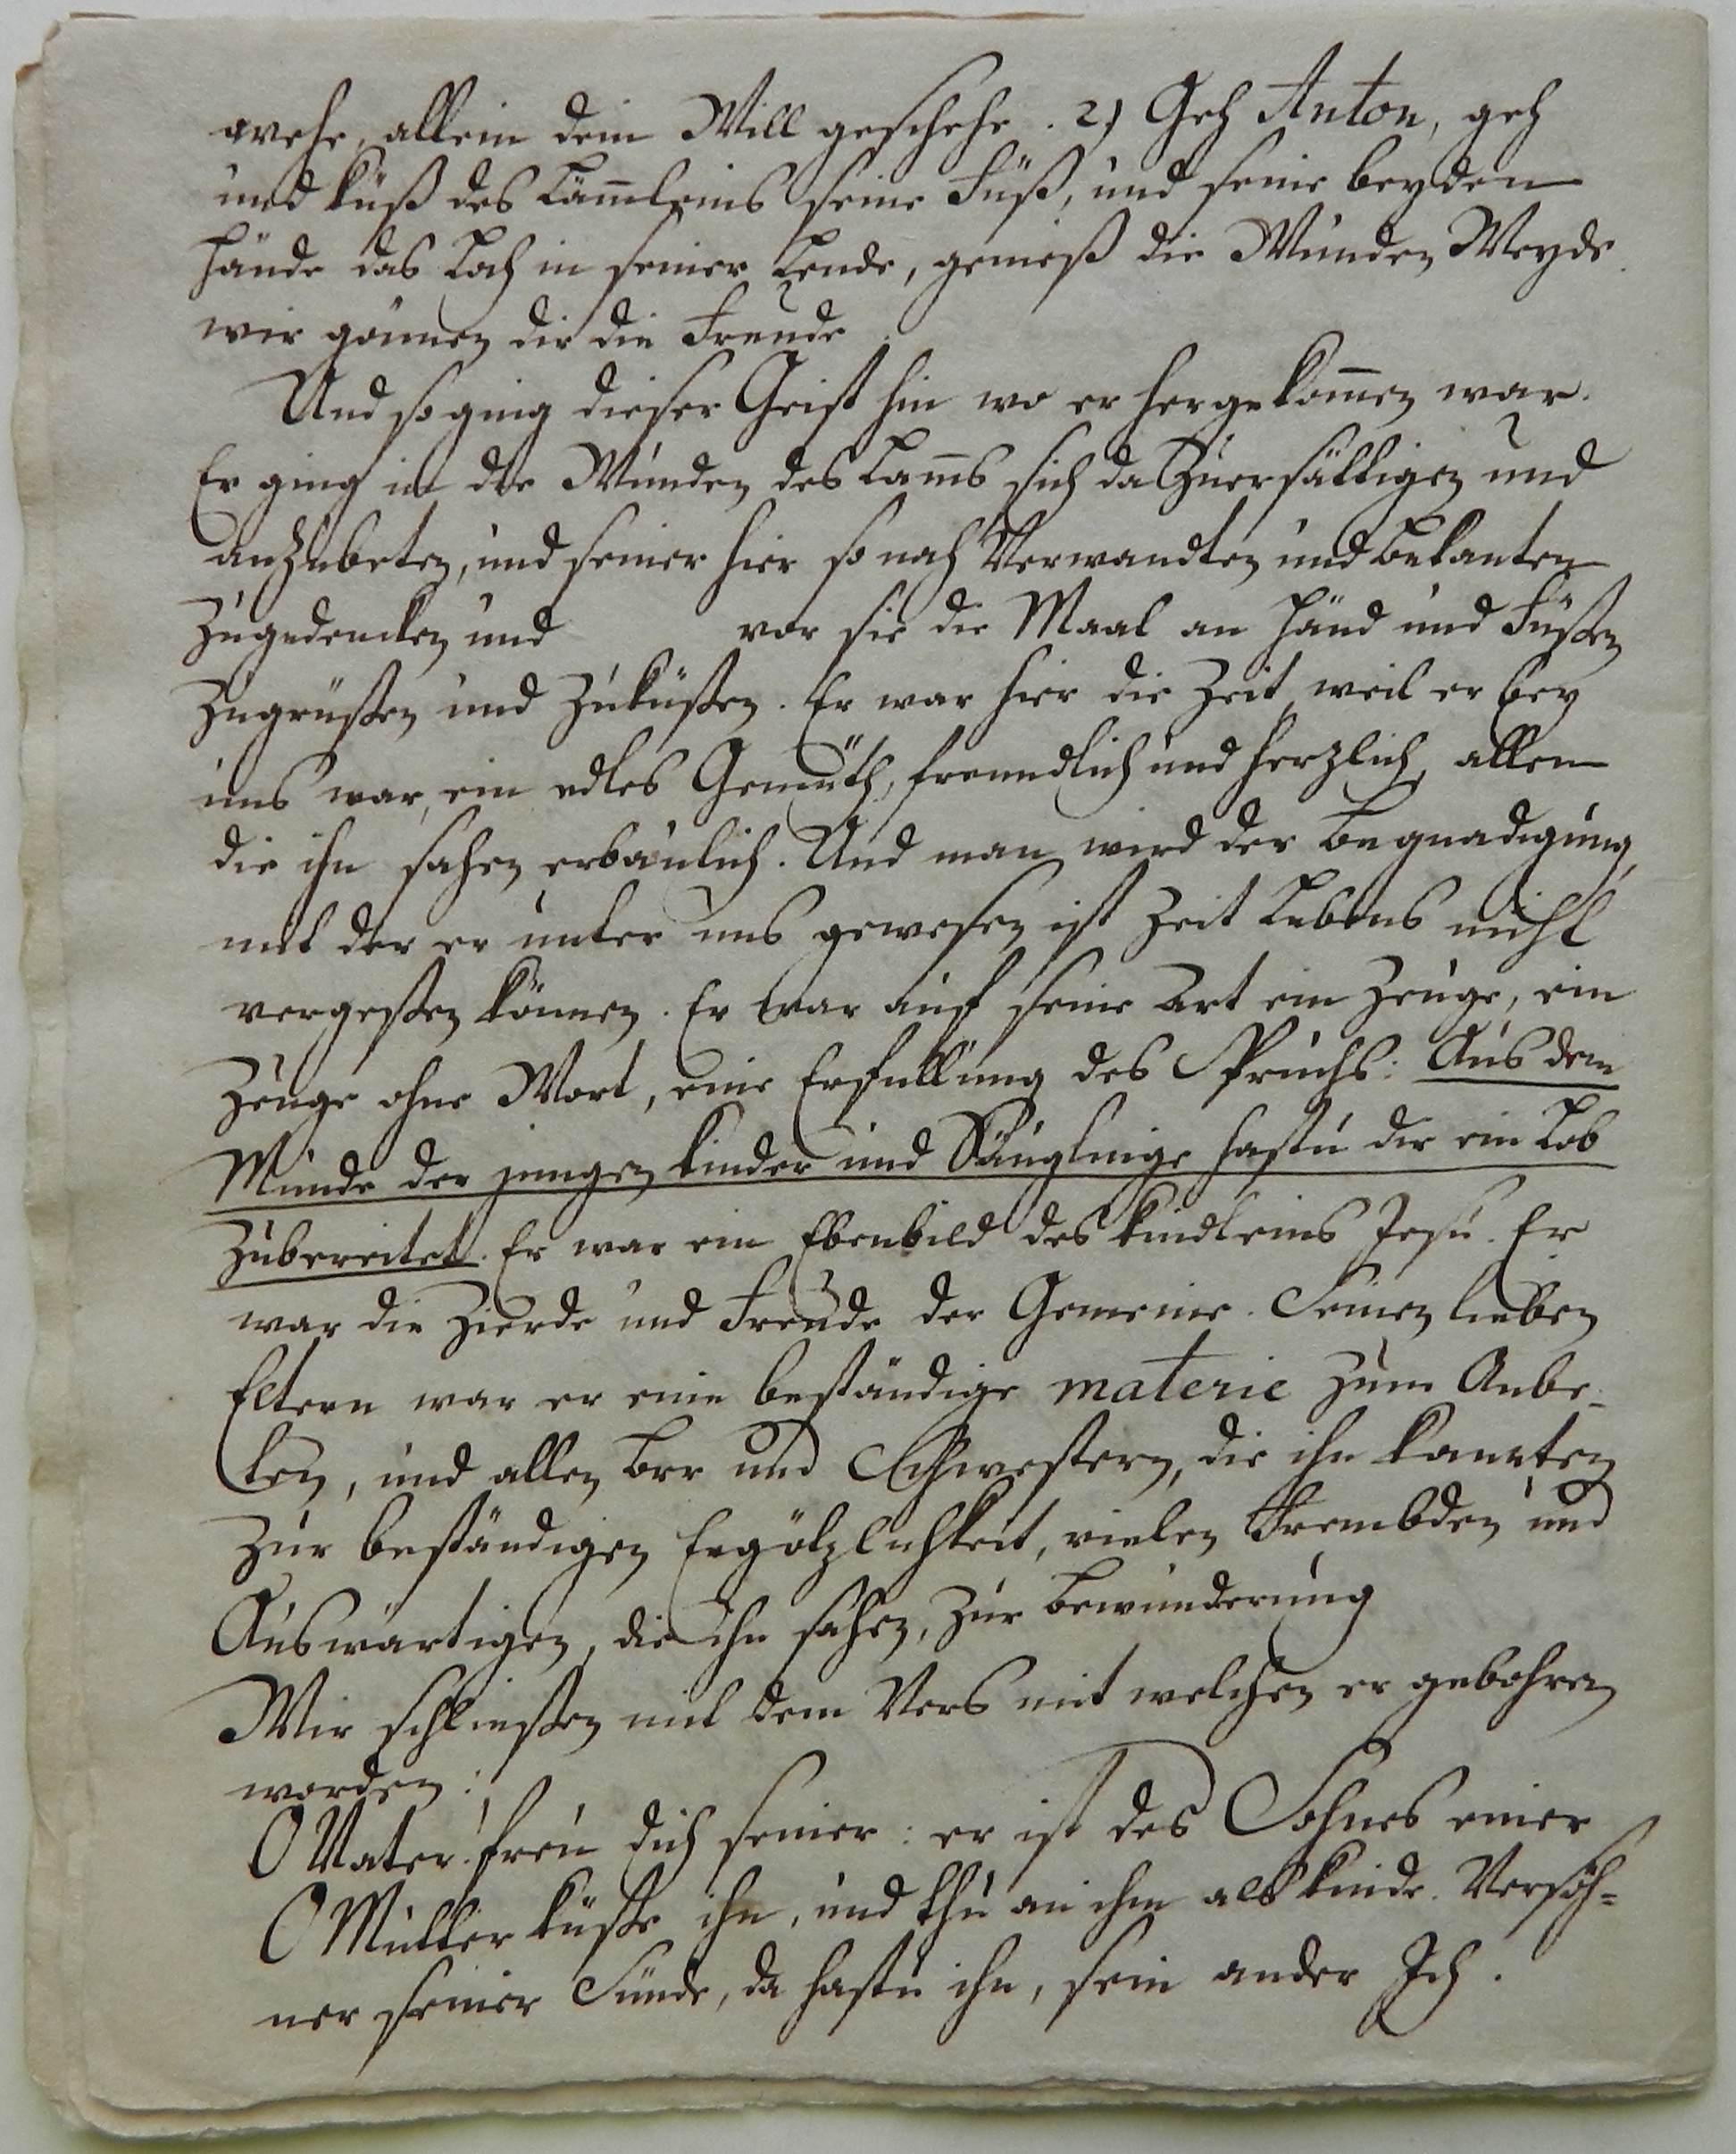 wehe, allein dein Will geschehe. 2) Geh Anton, geh
und küß des Lämleins seine Füß, und seine beyden
Hände das Loch in seiner Lende, genieß die Wunden Weyde
wir gönnen dir die Freude.
Und so ging dieser Geist hin wo er hergekom̄en war.
Er ging in die Wunden des Lam̄s sich da zuersättigen und
anzubeten, und seiner hier so nah Verwandten und Bekanten
zugedencken und vor sie die Maal an Händ und Füßen
zugrüßen und zuküßen. Er war hier die Zeit, weil er bey
uns war, ein edles Gemüth, freundlich und herzlich, allen
die ihn sahen erbaulich. Und man wird der Begnadigung,
mit der er unter uns gewesen ist Zeit Lebens nicht
vergeßen können. Er war auf seine Art ein Zeuge, ein
Zeuge ohne Wort, eine Erfüllung des Spruchs: Aus dem
Munde der jungen Kinder und Säuglinge hastu dir ein Lob
zubereitet. Er war ein Ebenbild des Kindleins Jesu. Er
war die Zierde und Freude der Gemeine. Seinen lieben
Eltern war er eine beständige materie zum Anbe-
ten, und allen Brr und Schwestern, die ihn kannten
zur beständigen Ergötzlichkeit, vielen Frembden und
Auswärtigen, die ihn sahen, zur Bewunderung
Wir schließen mit dem Vers mit welchen er gebohren
worden:
O Vater! freu dich seiner: er ist des Sohnes einer
O Mutter küsse ihn, und thu an ihm als Kinde. Versöh-
ner seiner Sünde, da hastu ihn, sein ander Ich.